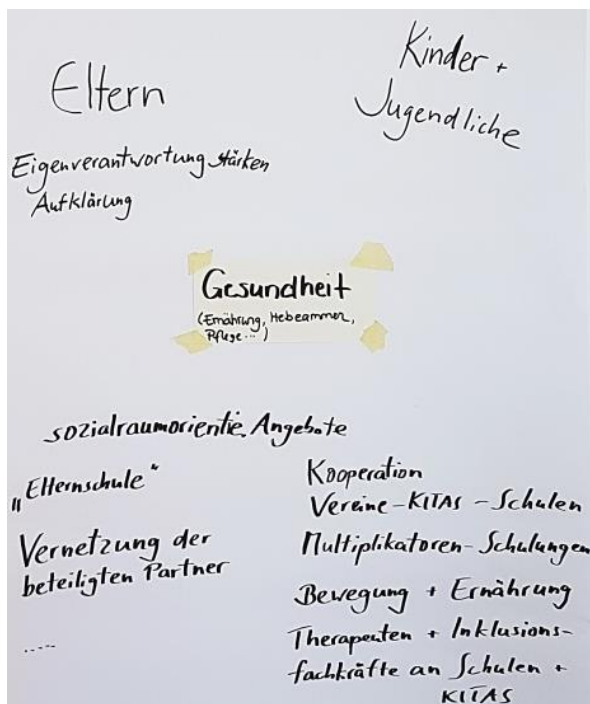 Eltern
Kinder +
Jugendliche
Eigenverantwortung stärken
Aufklärung
Gesundheit
(Ernährung, Hebeammen,
Pflege...)
sozialraumorientie. Angebote
„Elternschule“
Vernetzung der
beteiligten Partner
.....
Kooperation
Vereine-KITAS-Schulen
Multiplikatoren-Schulungen
Bewegung + Ernährung
Therapeuten + Inklusions-
fachkräfte an Schulen +
KITAS